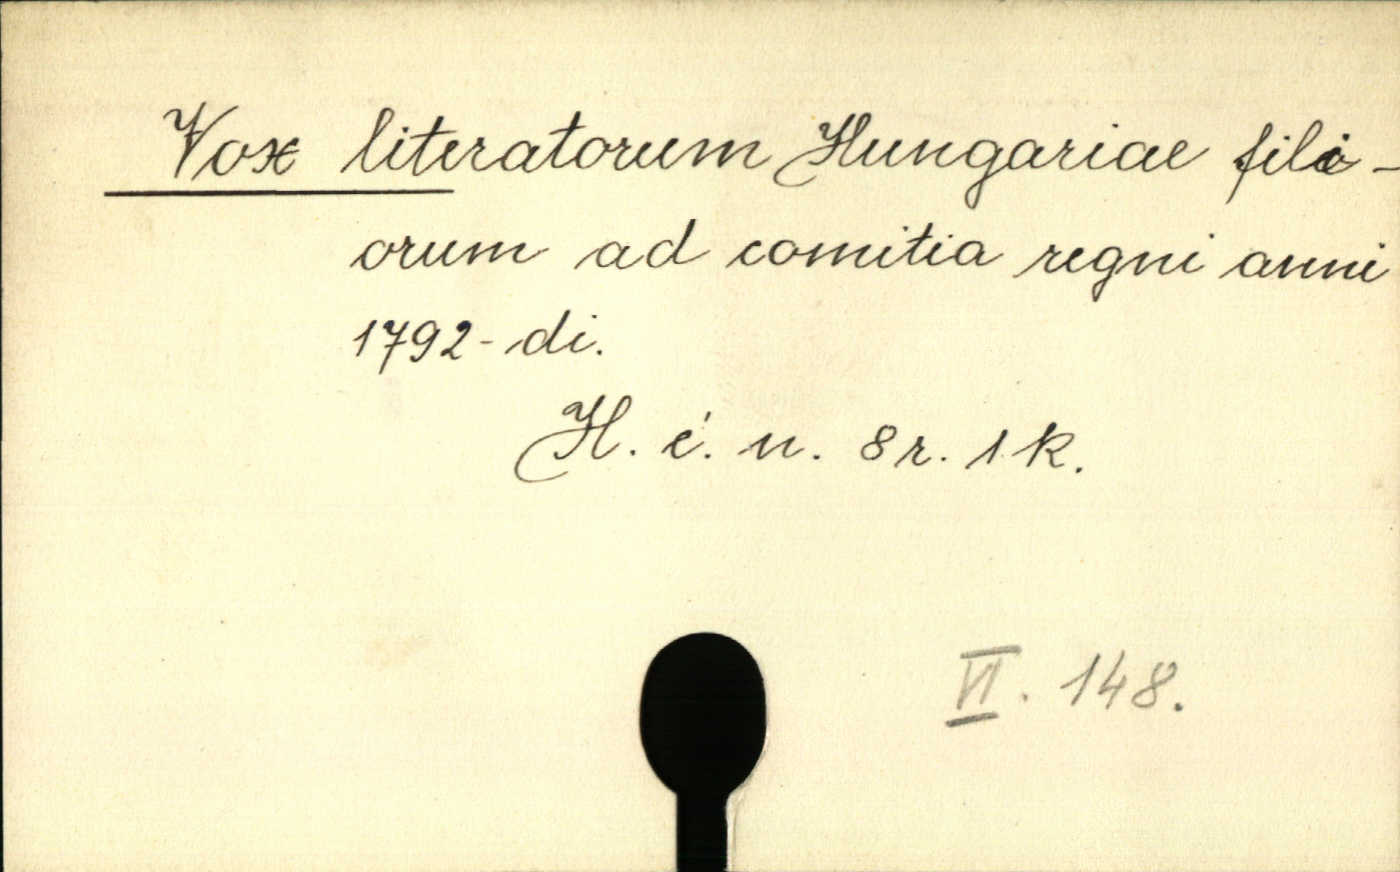 Vox literatorum Hungariae fili-
orum ad comitia regni anni
1792-di.
H. é. n. 8 r. 1 k.
VI. 148.